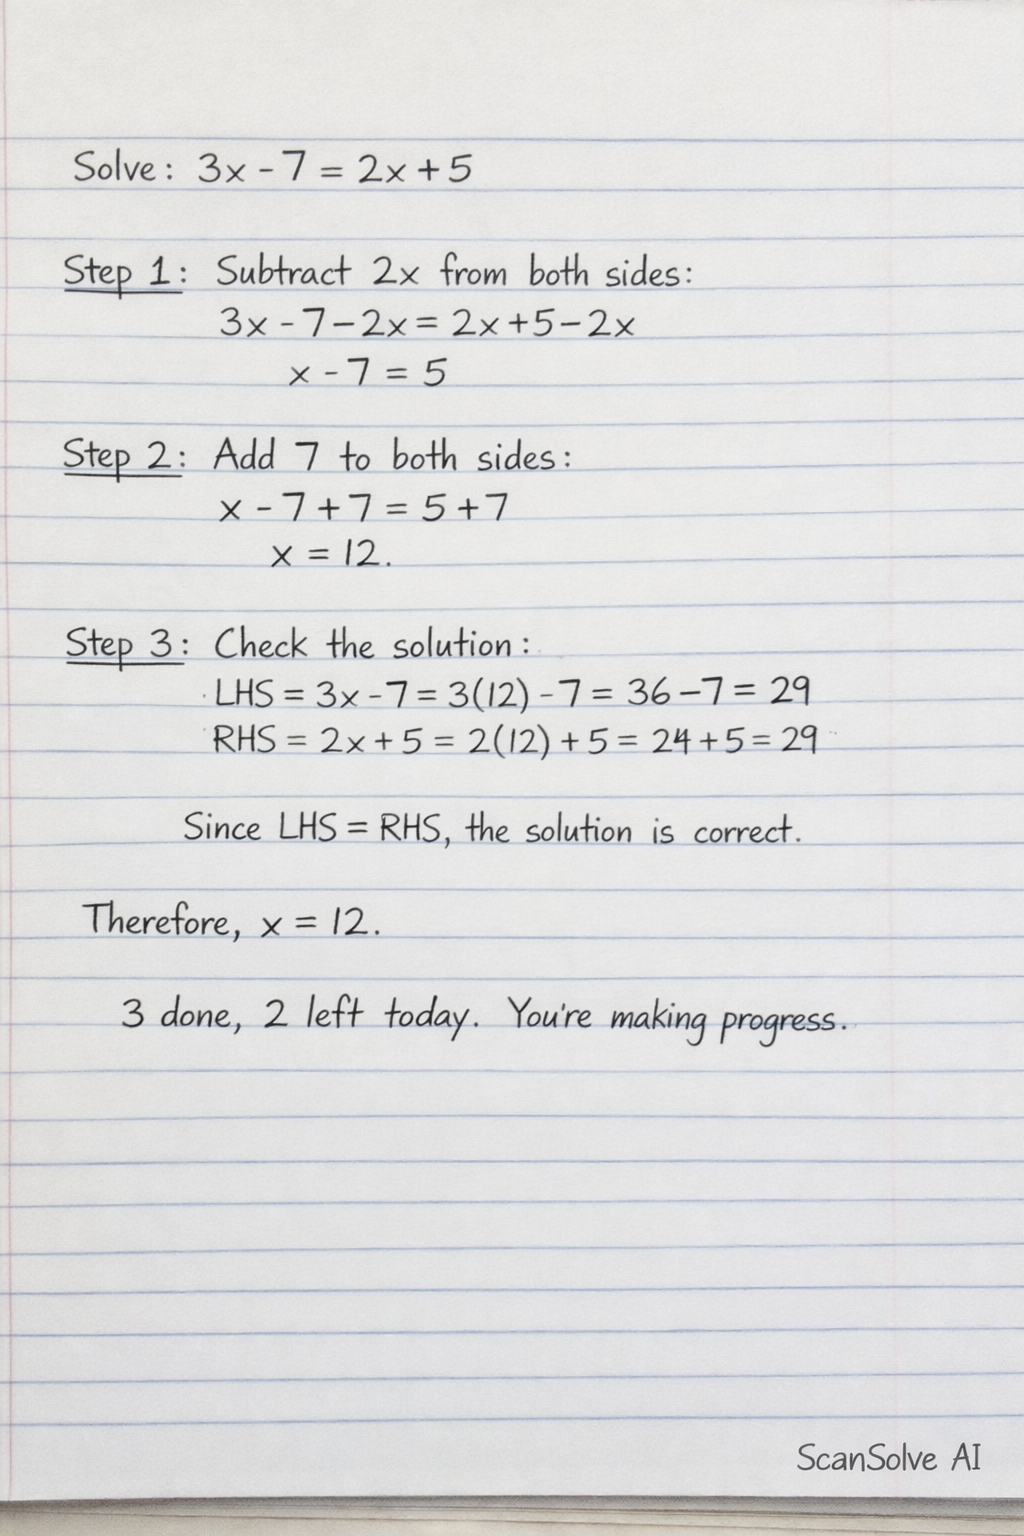 Solve: 3x - 7 = 2x + 5
Step 1: Subtract 2x from both sides:
3x - 7 - 2x = 2x + 5 - 2x
x - 7 = 5
Step 2: Add 7 to both sides:
x - 7 + 7 = 5 + 7
x = 12.
Step 3: Check the solution:
LHS = 3x - 7 = 3(12) - 7 = 36 - 7 = 29
RHS = 2x + 5 = 2(12) + 5 = 24 + 5 = 29
Since LHS = RHS, the solution is correct.
Therefore, x = 12.
3 done, 2 left today. You're making progress.
ScanSolve AI